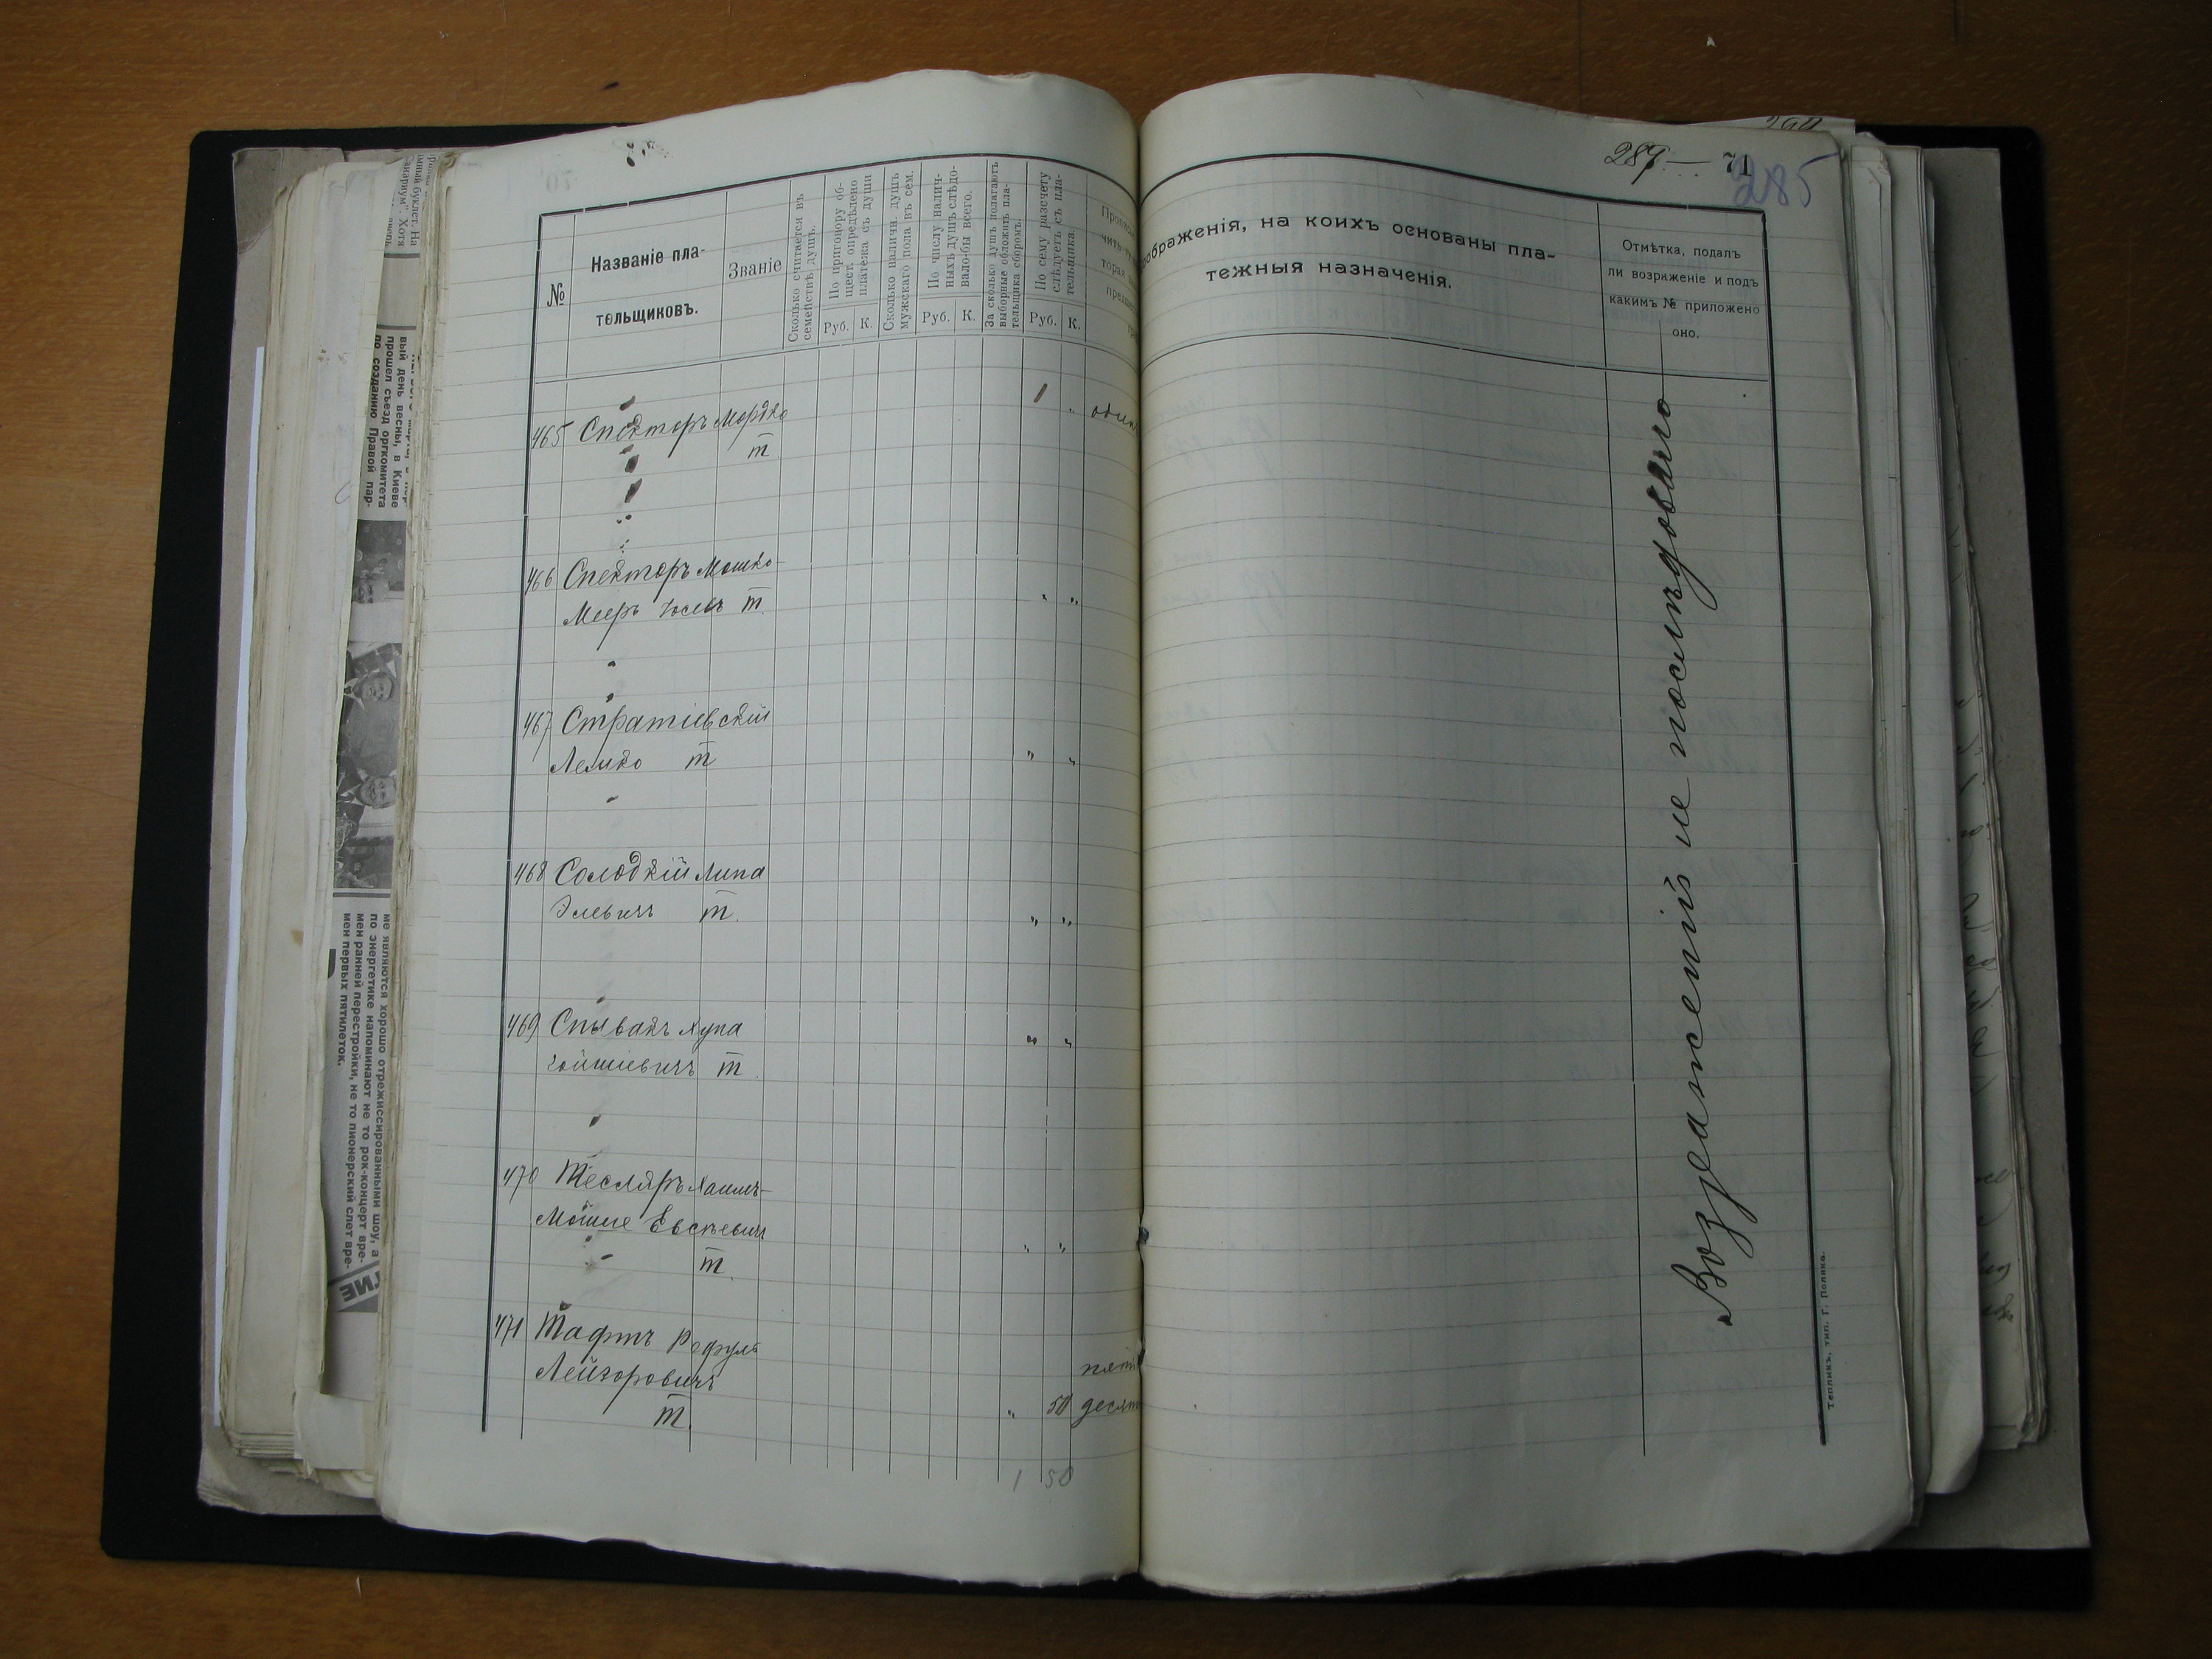 287 — 71
285
№
Названіе пла-
тельщиковъ.
Званіе
Сколько считается въ
семействѣ душъ.
По приговору об-
щест. опредѣлено
платежа съ души
Руб. К.
Сколько наличн. душъ
мужскаго пола въ сем.
По числу налич-
ныхъ душъ слѣдо-
вало-бы всего.
Руб. К.
За сколько душъ полагаютъ
выборные обложить пла-
тельщика сборомъ.
По сему разсчету
слѣдуетъ съ пла-
тельщика.
Руб. К.
ображенія, на коихъ основаны пла-
тежныя назначенія.
Отмѣтка, подалъ
ли возраженіе и подъ
какимъ № приложено
оно.
465 Спекторъ Мордко 1 " один
т
466 Спекторъ Мошко-
Меер Іосев т. " "
467 Стратіевскій
Лемко т " "
468 Солодкій Липа
Элевичъ т. " "
469 Спывакъ Хупа " "
т.
470 Тесляръ Хаимъ-
Мойше Евсѣевич " "
т.
471 Тафтъ Рефуль
Лейзоровичъ пять
т. " 50 десят
1 50
Возраженій не послѣдовало
Тепликъ, тип. Г. Поляка.
вый день весны, в Киеве
прошел съезд оргкомитета
по созданию Правой пар-
ме являются хорошо отрежиссированными шоу, а
по энергетике напоминают не то рок-концерт вре-
мен ранней перестройки, не то пионерский слет вре-
мен первых пятилеток.